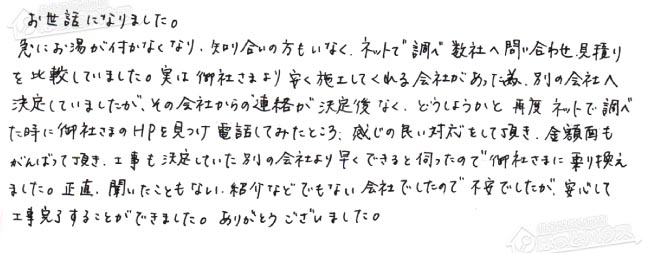 お世話になりました。
急にお湯が付かなくなり、知り合いの方もいなく、ネットで調べ数社へ問い合わせ、見積り
を比較していました。実は御社さまより安く施工してくれる会社があった為、別の会社へ
決定していましたが、その会社からの連絡が決定後なく、どうしようかと再度ネットで調べ
た時に御社さまのHPを見つけ電話してみたところ、感じの良い対応をして頂き、金額面も
がんばって頂き、工事も決定していた別の会社より早くできると伺ったので御社さまに乗り換え
ました。正直、聞いたこともない、紹介などでもない会社でしたので不安でしたが、安心して
工事完了することができました。ありがとうございました。